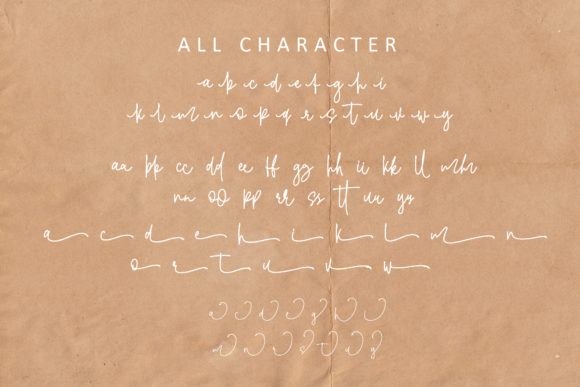 ALL CHARACTER
a b c d e f g h i
k l m n o p q r s t u v w y
aa bb cc dd ee ff gg hh ii kk ll mm
nn oo pp rr ss tt uu yy
a c d e h i k l m n
o r t u v w
a d g h
m n s t u y